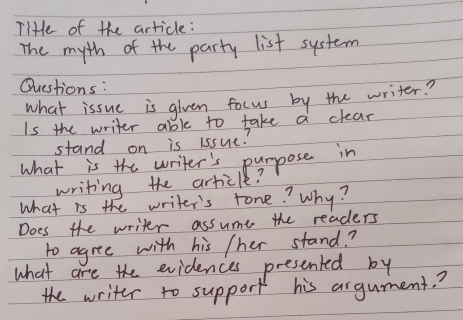 Title of the article:
The myth of the party list system
Questions:
What issue is given focus by the writer?
Is the writer able to take a clear
stand on is issue?
What is the writer's purpose in
writing the article?
What is the writer's tone? Why?
Does the writer assume the readers
to agree with his/her stand?
What are the evidences presented by
the writer to support his argument?